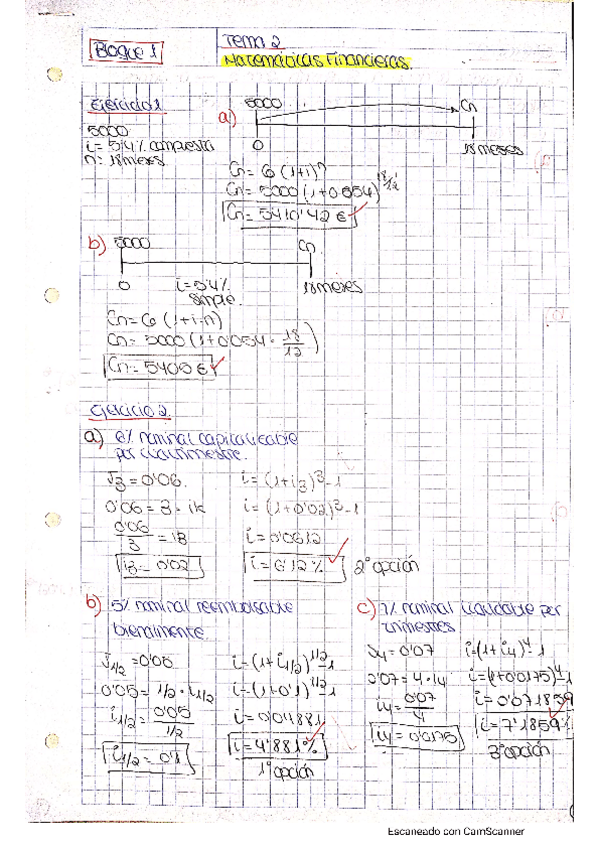 Bloque 1
Tema 2
Matemáticas Financieras.
Ejercicio 1
5000
i = 5'4% compuesta
n = 18 meses
a)
5000
Cn
0
18 meses
Cn = C0 (1+i)^n
Cn = 5000 (1+0'054)^18/12
Cn = 5410'42 €
b)
5000
Cn
0
i = 5'4%
simple.
18 meses
Cn = C0 (1+i·n)
Cn = 5000 (1+0'054 · 18/12)
Cn = 5405 €
Ejercicio 2.
a) 6% nominal capitalizable
por cuatrimestre.
J3 = 0'06.
0'06 = 3 · ik
0'06/3 = i3
i3 = 0'02
i = (1+i3)^3 - 1
i = (1+0'02)^3 - 1
i = 0'0612
i = 6'12%
2ª opción
b) 5% nominal reembolsable
bienalmente
J1/2 = 0'05
0'05 = 1/2 · i1/2
i1/2 = 0'05/1/2
i1/2 = 0'1
i = (1+i1/2)^1/2 - 1
i = (1+0'1)^1/2 - 1
i = 0'04881
i = 4'881%
1ª opción
c) 7% nominal liquidable por
trimestres
J4 = 0'07
0'07 = 4 · i4
i4 = 0'07/4
i4 = 0'0175
i = (1+i4)^4 - 1
i = (1+0'0175)^4 - 1
i = 0'071859
i = 7'1859%
3ª opción
Escaneado con CamScanner